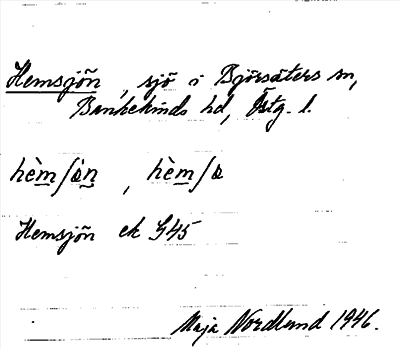 Hemsjön, sjö i Björsäters sn,
Bankekinds hd, Östg. l.
hèm/ȧn, hèm/a
Hemsjön ek G45
Maja Nordlund 1946.